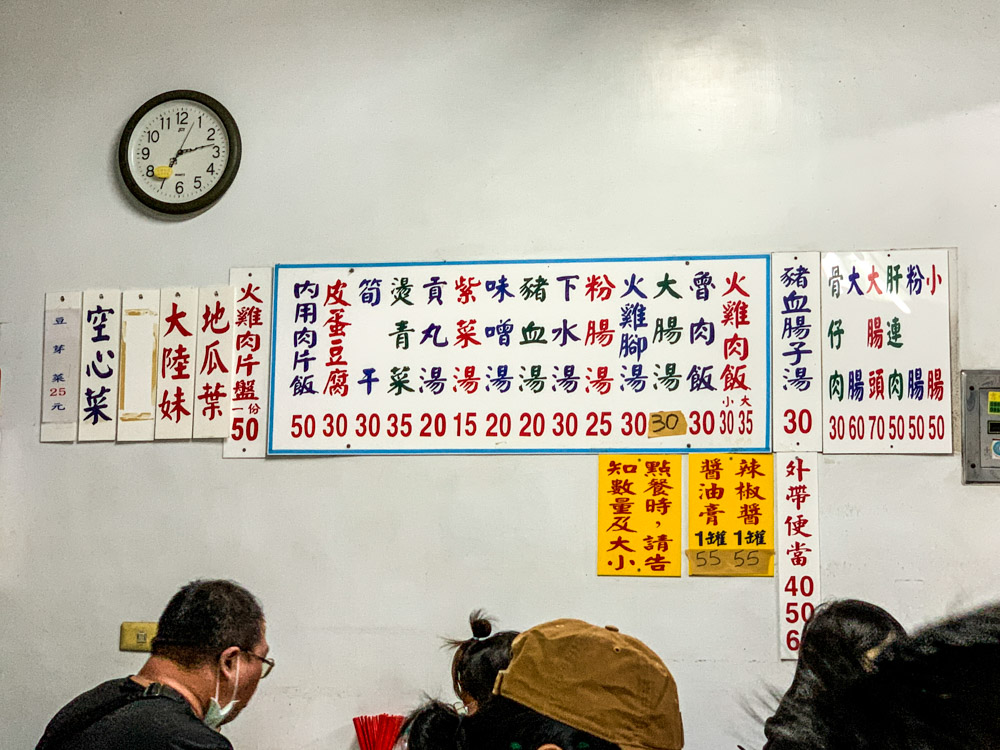 12
1
2
3
4
5
6
7
8
9
10
11
小腸 50
粉腸 50
肝連肉 50
大腸頭 70
大腸 60
骨仔肉 30
豬血腸子湯 30
火雞肉飯 小30 大35
魯肉飯 30
大腸湯 30
火雞腳湯 30
粉腸湯 25
下水湯 30
豬血湯 20
味噌湯 20
紫菜湯 15
貢丸湯 20
燙青菜 35
筍干 30
皮蛋豆腐 30
內用肉片飯 50
火雞肉片盤 一份 50
地瓜葉
大陸妹
空心菜
豆芽菜25元
外帶便當 40 50
辣椒醬 1罐 55
醬油膏 1罐 55
點餐時，請告
知數量及大小